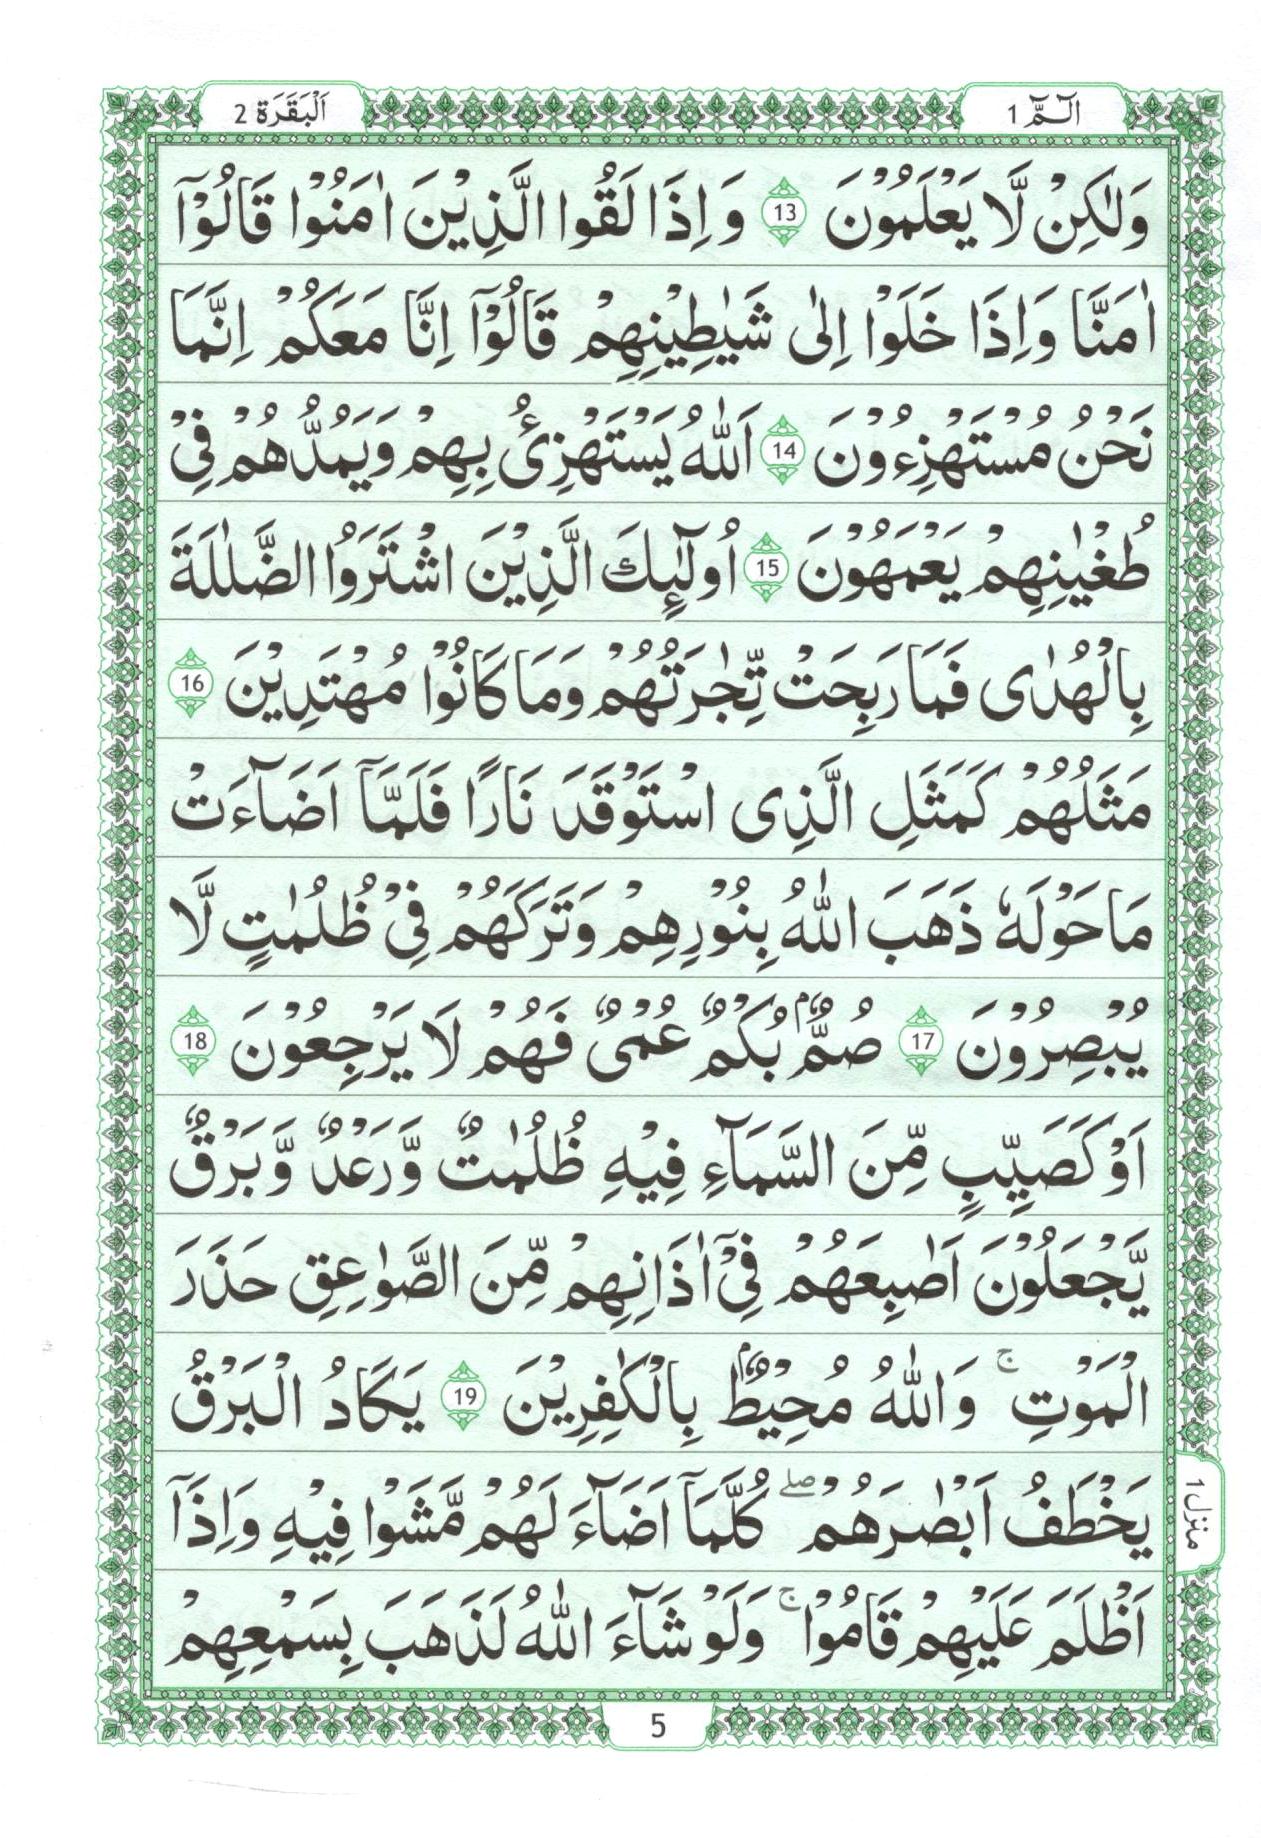 الٓمّٓ 1
اَلْبَقَرَة 2
وَلٰكِنْ لَّا يَعْلَمُوْنَ 13 وَ اِذَا لَقُوا الَّذِيْنَ اٰمَنُوْا قَالُوْٓا
اٰمَنَّا وَاِذَا خَلَوْا اِلٰى شَيٰطِيْنِهِمْ قَالُوْٓا اِنَّا مَعَكُمْ اِنَّمَا
نَحْنُ مُسْتَهْزِءُوْنَ 14 اَللّٰهُ يَسْتَهْزِئُ بِهِمْ وَيَمُدُّهُمْ فِىْ
طُغْيٰنِهِمْ يَعْمَهُوْنَ 15 اُولٰٓئِكَ الَّذِيْنَ اشْتَرَوُا الضَّلٰلَةَ
بِالْهُدٰى فَمَا رَبِحَتْ تِّجٰرَتُهُمْ وَمَا كَانُوْا مُهْتَدِيْنَ 16
مَثَلُهُمْ كَمَثَلِ الَّذِى اسْتَوْقَدَ نَارًا فَلَمَّآ اَضَآءَتْ
مَا حَوْلَهٗ ذَهَبَ اللّٰهُ بِنُوْرِهِمْ وَتَرَكَهُمْ فِىْ ظُلُمٰتٍ لَّا
يُبْصِرُوْنَ 17 صُمٌّۢ بُكْمٌ عُمْىٌ فَهُمْ لَا يَرْجِعُوْنَ 18
اَوْ كَصَيِّبٍ مِّنَ السَّمَآءِ فِيْهِ ظُلُمٰتٌ وَّرَعْدٌ وَّبَرْقٌ
يَّجْعَلُوْنَ اَصٰبِعَهُمْ فِىْٓ اٰذَانِهِمْ مِّنَ الصَّوٰعِقِ حَذَرَ
الْمَوْتِ ۚ وَاللّٰهُ مُحِيْطٌۢ بِالْكٰفِرِيْنَ 19 يَكَادُ الْبَرْقُ
يَخْطَفُ اَبْصٰرَهُمْ ۖ كُلَّمَآ اَضَآءَ لَهُمْ مَّشَوْا فِيْهِ وَاِذَآ
اَظْلَمَ عَلَيْهِمْ قَامُوْا ۚ وَلَوْ شَآءَ اللّٰهُ لَذَهَبَ بِسَمْعِهِمْ
منزل 1
5